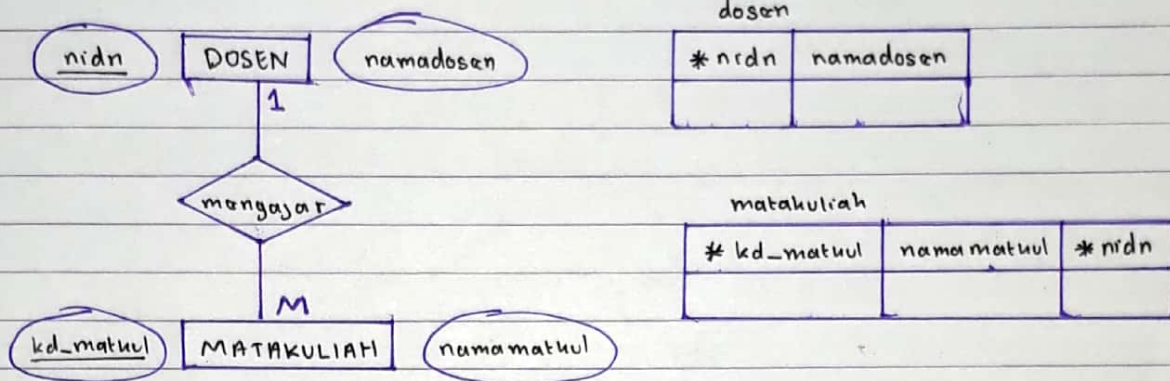 nidn DOSEN namadosen
1
mengajar
M
kd_matkul MATAKULIAH namamatkul
dosen
* nidn namadosen
matakuliah
* kd_matkul namamatkul * nidn